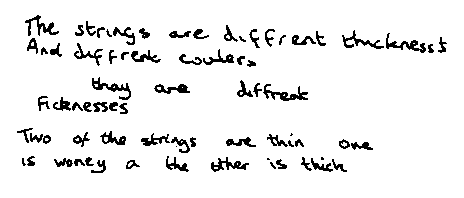 The strings are diffrent thicknesss
And diffrent coulers
thay are diffreat
Ficknesses
Two of the strings are thin one
is woney a the other is thick